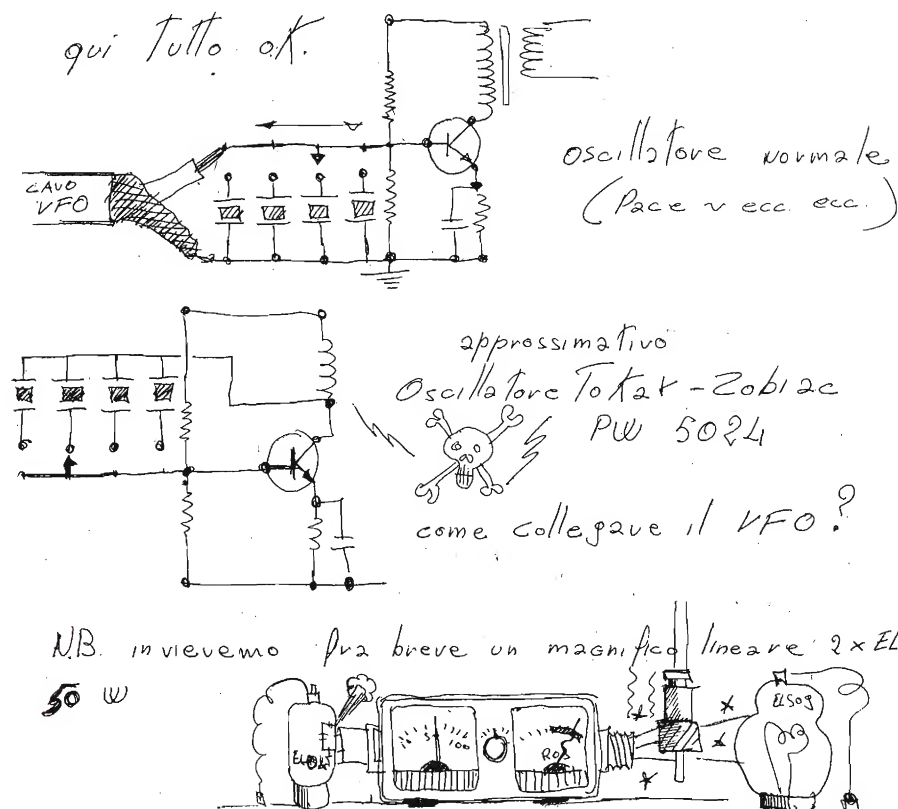 qui tutto o.k.
oscillatore normale
(Pace ecc. ecc.)
CAVO
VFO
approssimativo
Oscillatore Tokai-Zodiac
PW 5024
come collegare il VFO?
N.B. invieremo fra breve un magnifico lineare 2 x EL
50 W
5
100
ROS
EL509